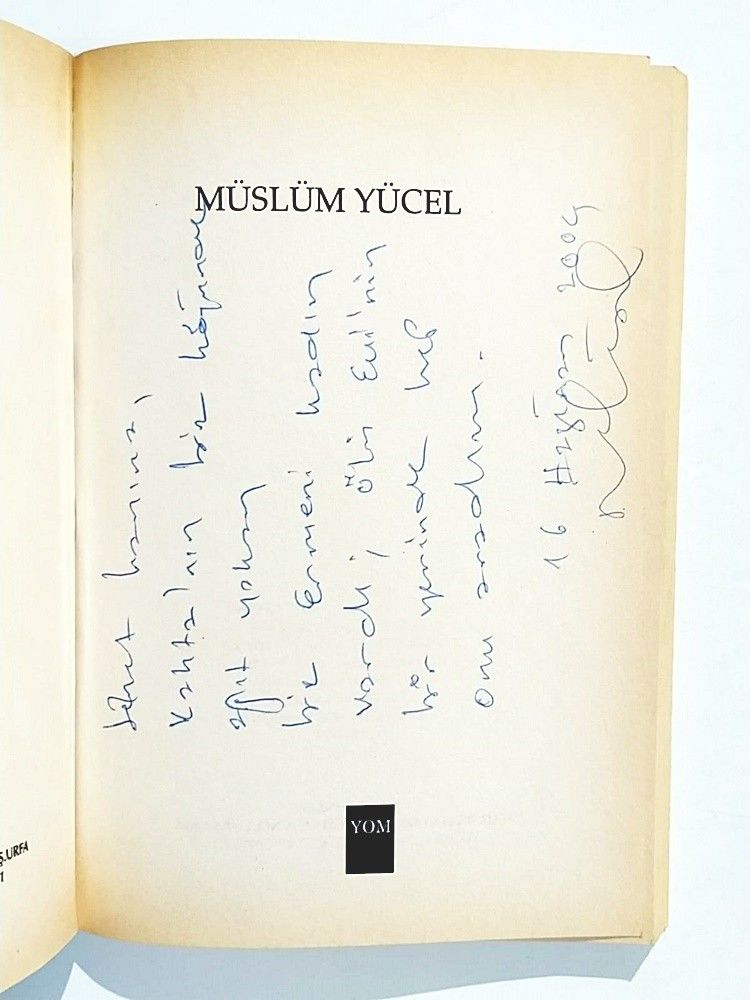 MÜSLÜM YÜCEL
hanıma,
Kahta'nın bir köyünde
ağıt yakan
bir Ermeni kadın
vardı, ölü Evi'nin
bir yerinde hep
onu aradım.
16 Haziran 2004
YOM
Ş.URFA
1